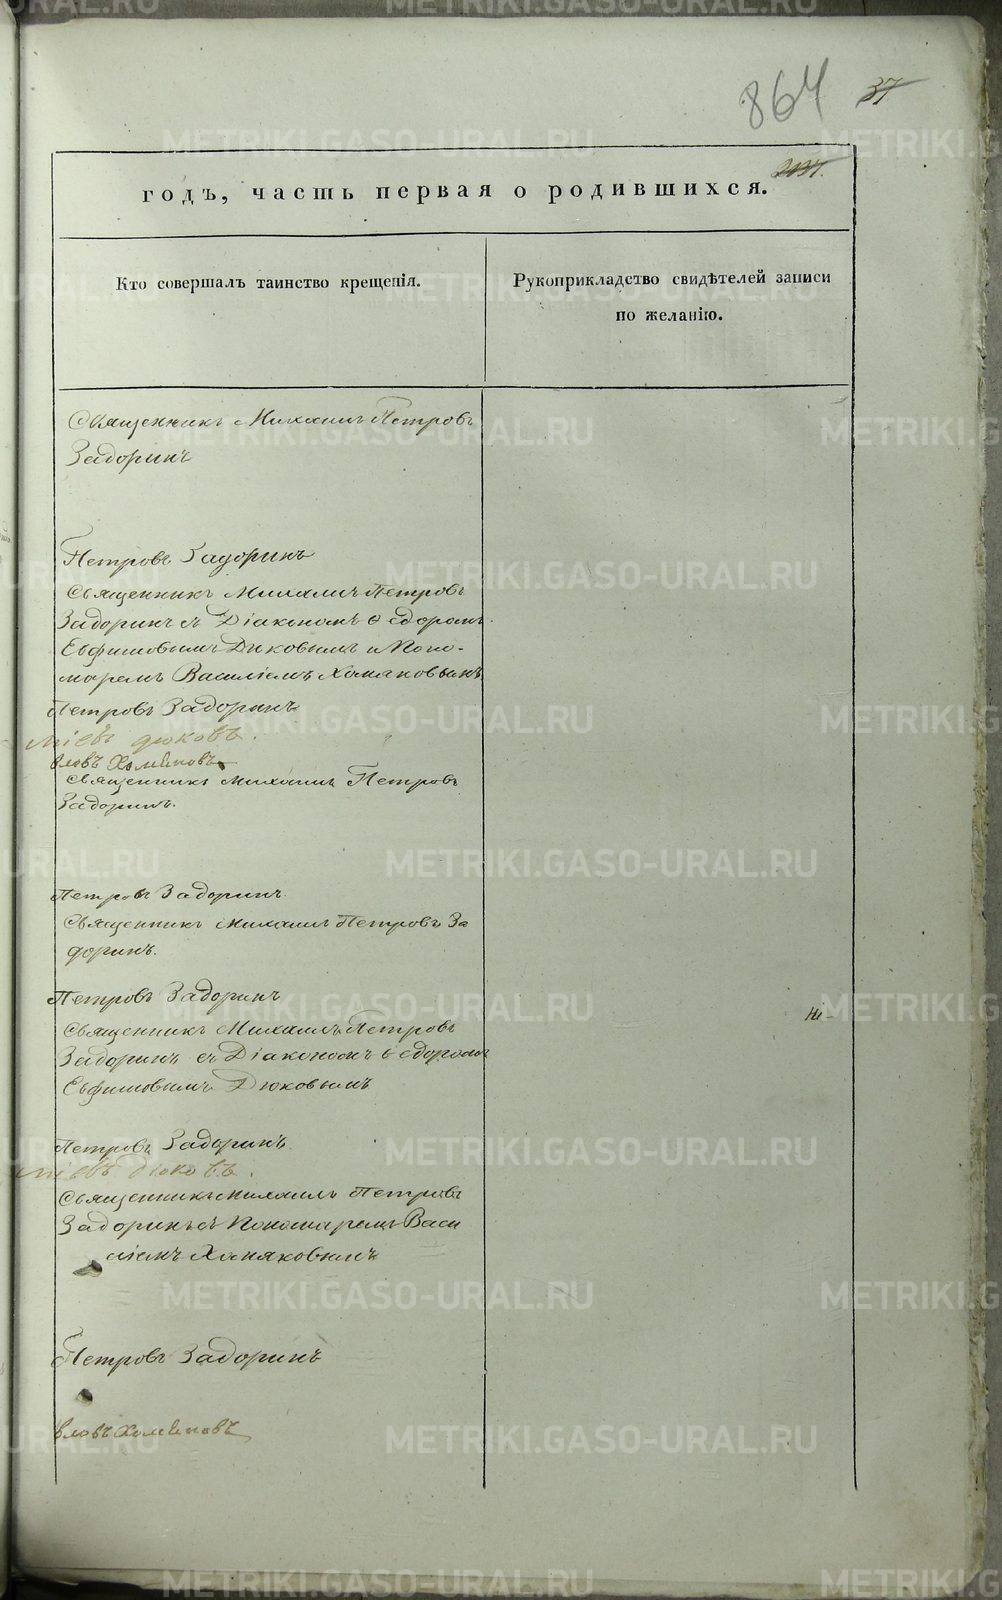 864 37
годъ, часть первая о родившихся.
Кто совершалъ таинство крещенія.
Рукоприкладство свидѣтелей записи
по желанію.
Священникъ Михаилъ Петровъ
Задоринъ
Петровъ Задоринъ
Священникъ Михаилъ Петровъ
Задоринъ съ Діакономъ Ѳедоромъ
Евфимовымъ Дюковымъ и Поно-
маремъ Василіемъ
Петровъ Задоринъ
дюковъ.
Священникъ Михаилъ Петровъ
Задоринъ.
Петровъ Задоринъ.
Священникъ Михаилъ Петровъ За
доринъ.
Петровъ Задоринъ
Священникъ Михаилъ Петровъ
Задоринъ съ Діакономъ Ѳедоромъ
Евфимовымъ Дюковымъ
Петровъ Задоринъ
дюковъ.
Священникъ Михаилъ Петровъ
Задоринъ съ Пономаремъ Васи
ліемъ
Петровъ Задоринъ
METRIKI.GASO-URAL.RU